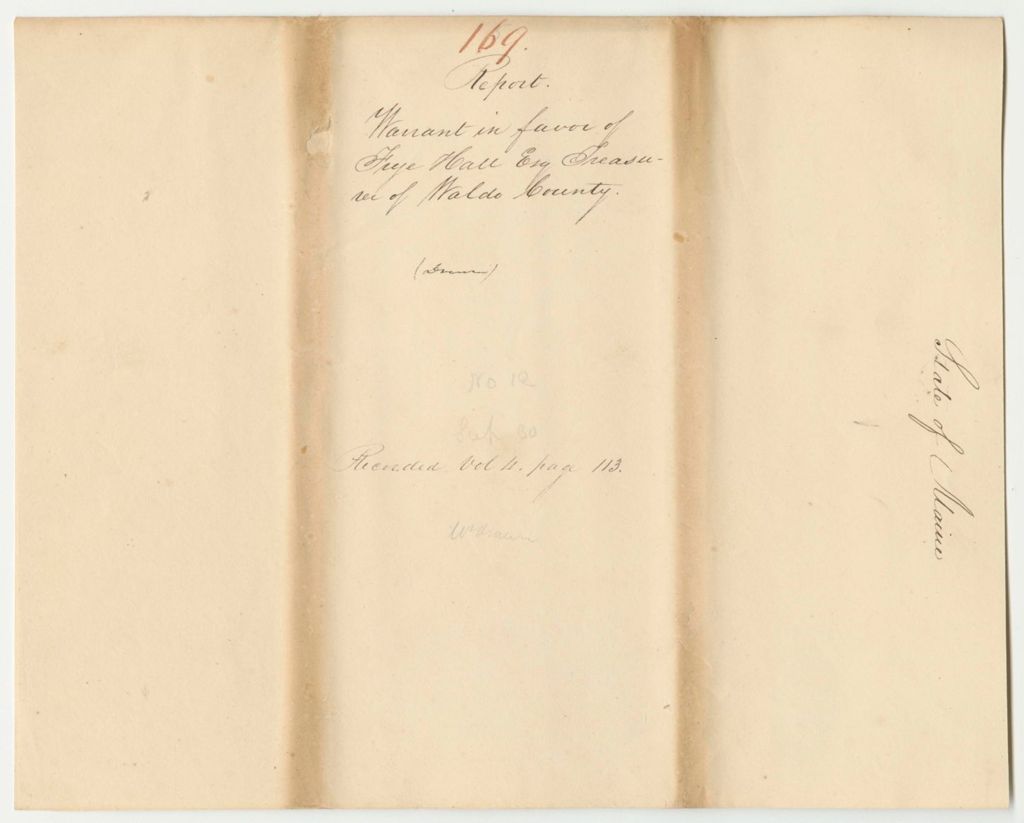 169.
Report.
Warrant in favor of
Frye Hall Esq Treasu-
rer of Waldo County.
(Drawn)
No 12
Sep 30
Recorded Vol 4. page 113.
Wt drawn
State of Maine